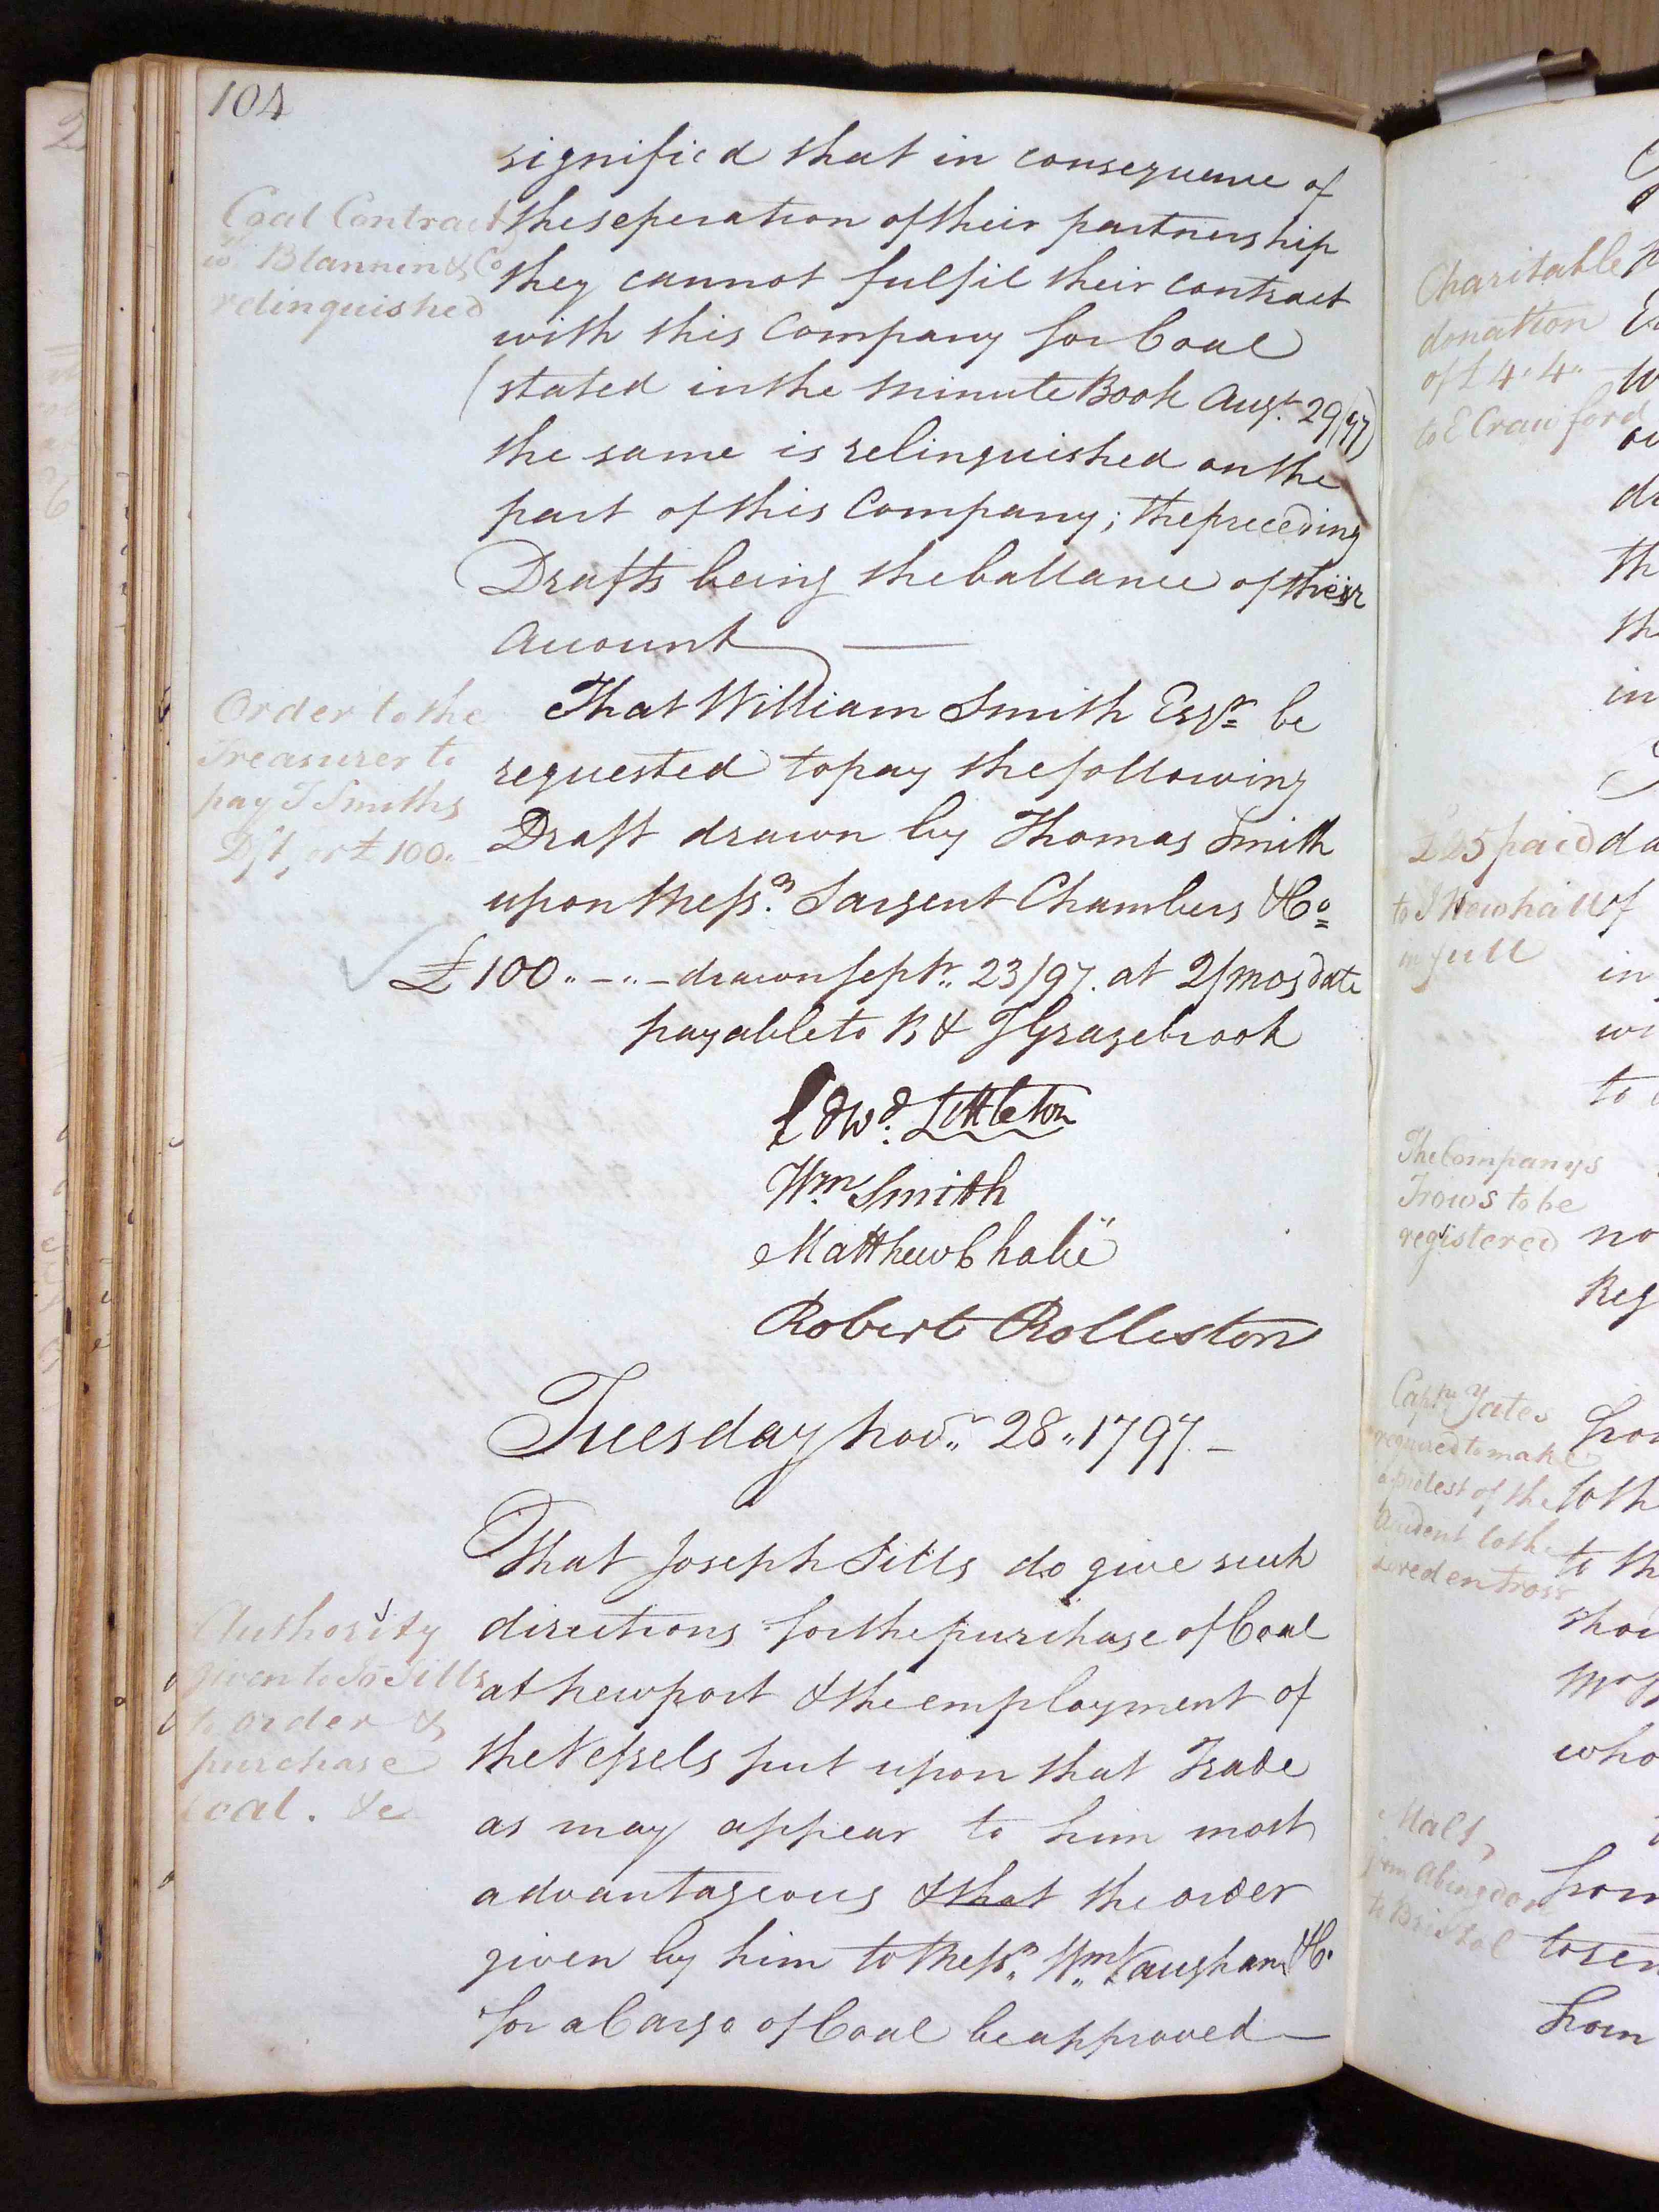 104
signified that in consequence of
the seperation of their partnership
they cannot fulfil their contract
with this Company for Coal
(stated in the Minute Book Augt. 29/97)
the same is relinquished on the
part of this Company; the preceding
Drafts being the ballance of their
Account
Coal Contract
wth. Blannin & Co
relinquished
That William Smith Esqr. be
requested to pay the following
Draft drawn by Thomas Smith
upon Messrs. Sargent Chambers & Co
£100.. - .. - drawn Septr.. 23/97. at 2/mos date
payable to B & J Grazebrook
Order to the
Treasurer to
pay T Smiths
Dft, or £100..
Edwd. Littleton
Wm Smith
Matthew Chalié
Robert Rolleston
Tuesday Novr.. 28.. 1797 -
That Joseph Sills do give such
directions for the purchase of Coal
at Newport & the employment of
the Vessels put upon that Trade
as may appear to him most
advantageous & that the order
given by him to Messrs.. Wm.. Vaughan & Co
for a Cargo of Coal be approved -
Authority
given to Jo Sills
to order &
purchase
Coal. &c
Charitable
donation
of £4.4..
to E Crawford
£25 paid
to J Newhall
in full
The Companys
Trows to be
registered
Captn Yates
required to make
a protest of the
Accident to the
Severn Trow
Malt,
from Abingdon
to Bristol
da
of
in
wi
to
no
Reg
from
to th
to th
shou
Mr
who
from
to sen
from